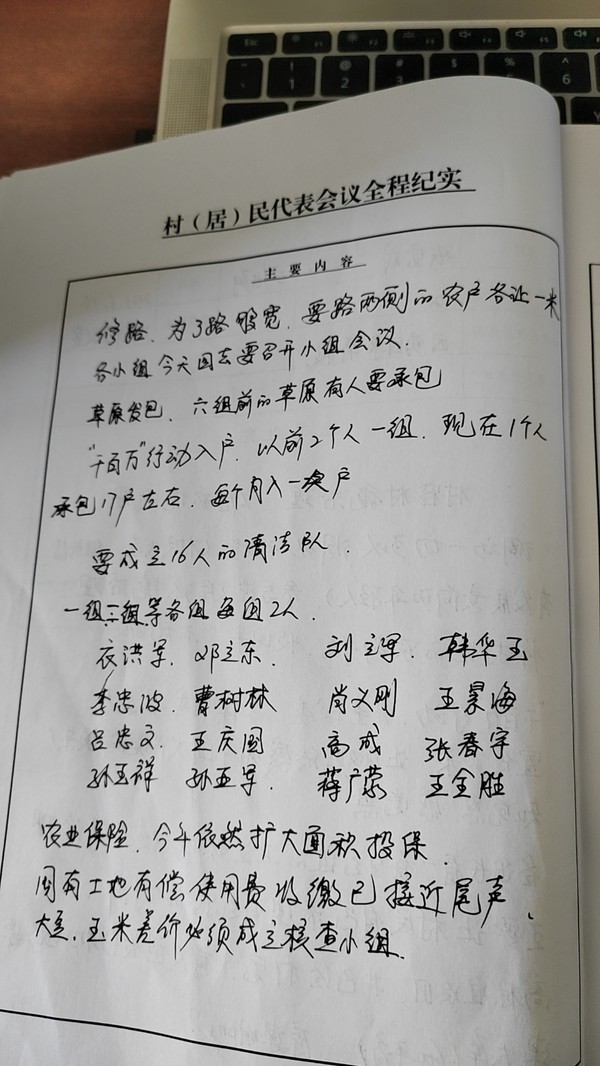 村（居）民代表会议全程纪实
主要内容
修路、为了路够宽、要路两侧的农户各让一米
各小组今天回去要召开小组会议.
草原发包、六组前的草原有人要承包
"千百万"行动入户、以前2个人一组、现在1个人
承包17户左右、每个月入一次户
要成立16人的清洁队、
一组二组等各组每组2人、
衣洪军、邓立东、 刘立军、 韩华玉
李忠波、曹树林 尚义刚 王景海
吕忠文、王庆国 高成 张春宇
孙玉祥 孙亚军、 蒋广荣 王全胜
农业保险、今年依然扩大面积投保、
国有土地有偿使用费收缴已接近尾声、
大豆、玉米差价必须成立核查小组、
esc
F1
F2
F3
F4
F5
1
2
3
4
5
6